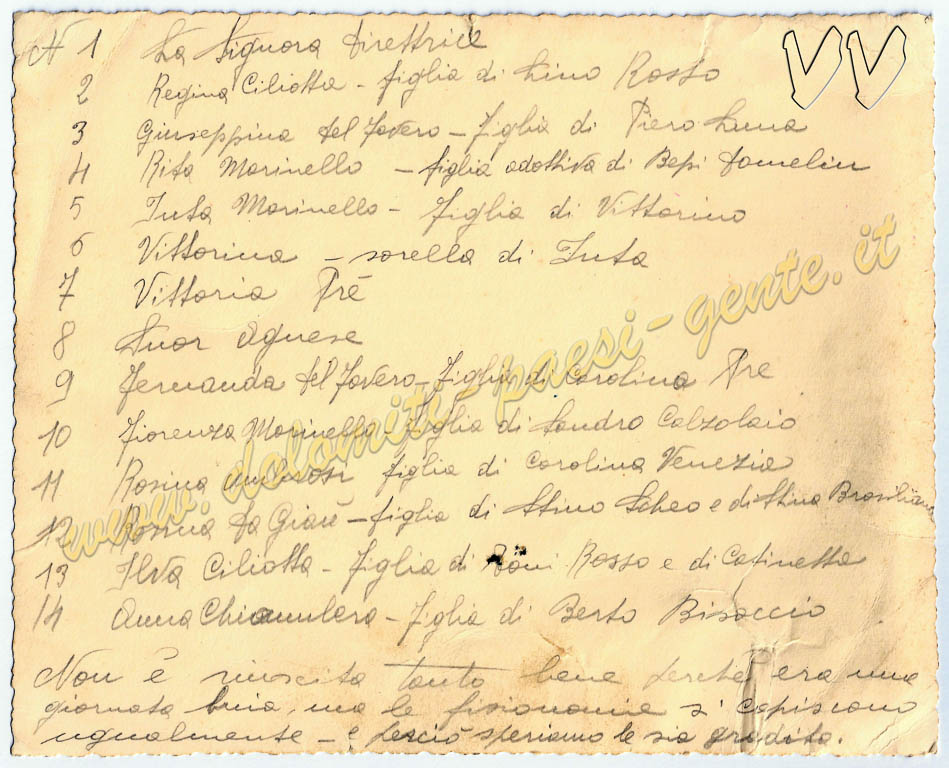 N 1 La Signora direttrice
2 Regina Ciliotta - figlia di Lino Rosso
3 Giuseppina del Favero - figlia di Piero Luna
4 Rita Marinello - figlia adottiva di Bepi
5 Iuta Marinello - figlia di Vittorino
6 Vittorina - sorella di Iuta
7 Vittoria Prè
8 Suor Agnese
9 Fernanda del Favero - figlia di Carolina Pre
10 Fiorenza Marinello - figlia di Sandro Calzolaio
11 Rosina figlia di Carolina Venezia
12 Rosina Da Giau - figlia di Stino Scheo e di Stina Brasiliana
13 Ilva Ciliotta - figlia di Toni Rosso e di Catinetta
14 Anna Chiamulera - figlia di Berto Bisaccio
Non è riuscita tanto bene perchè era una
giornata buia, ma le fisionomie si capiscono
ugualmente - e perciò speriamo le sia gradita.
VV
www.dolomiti-paesi-gente.it